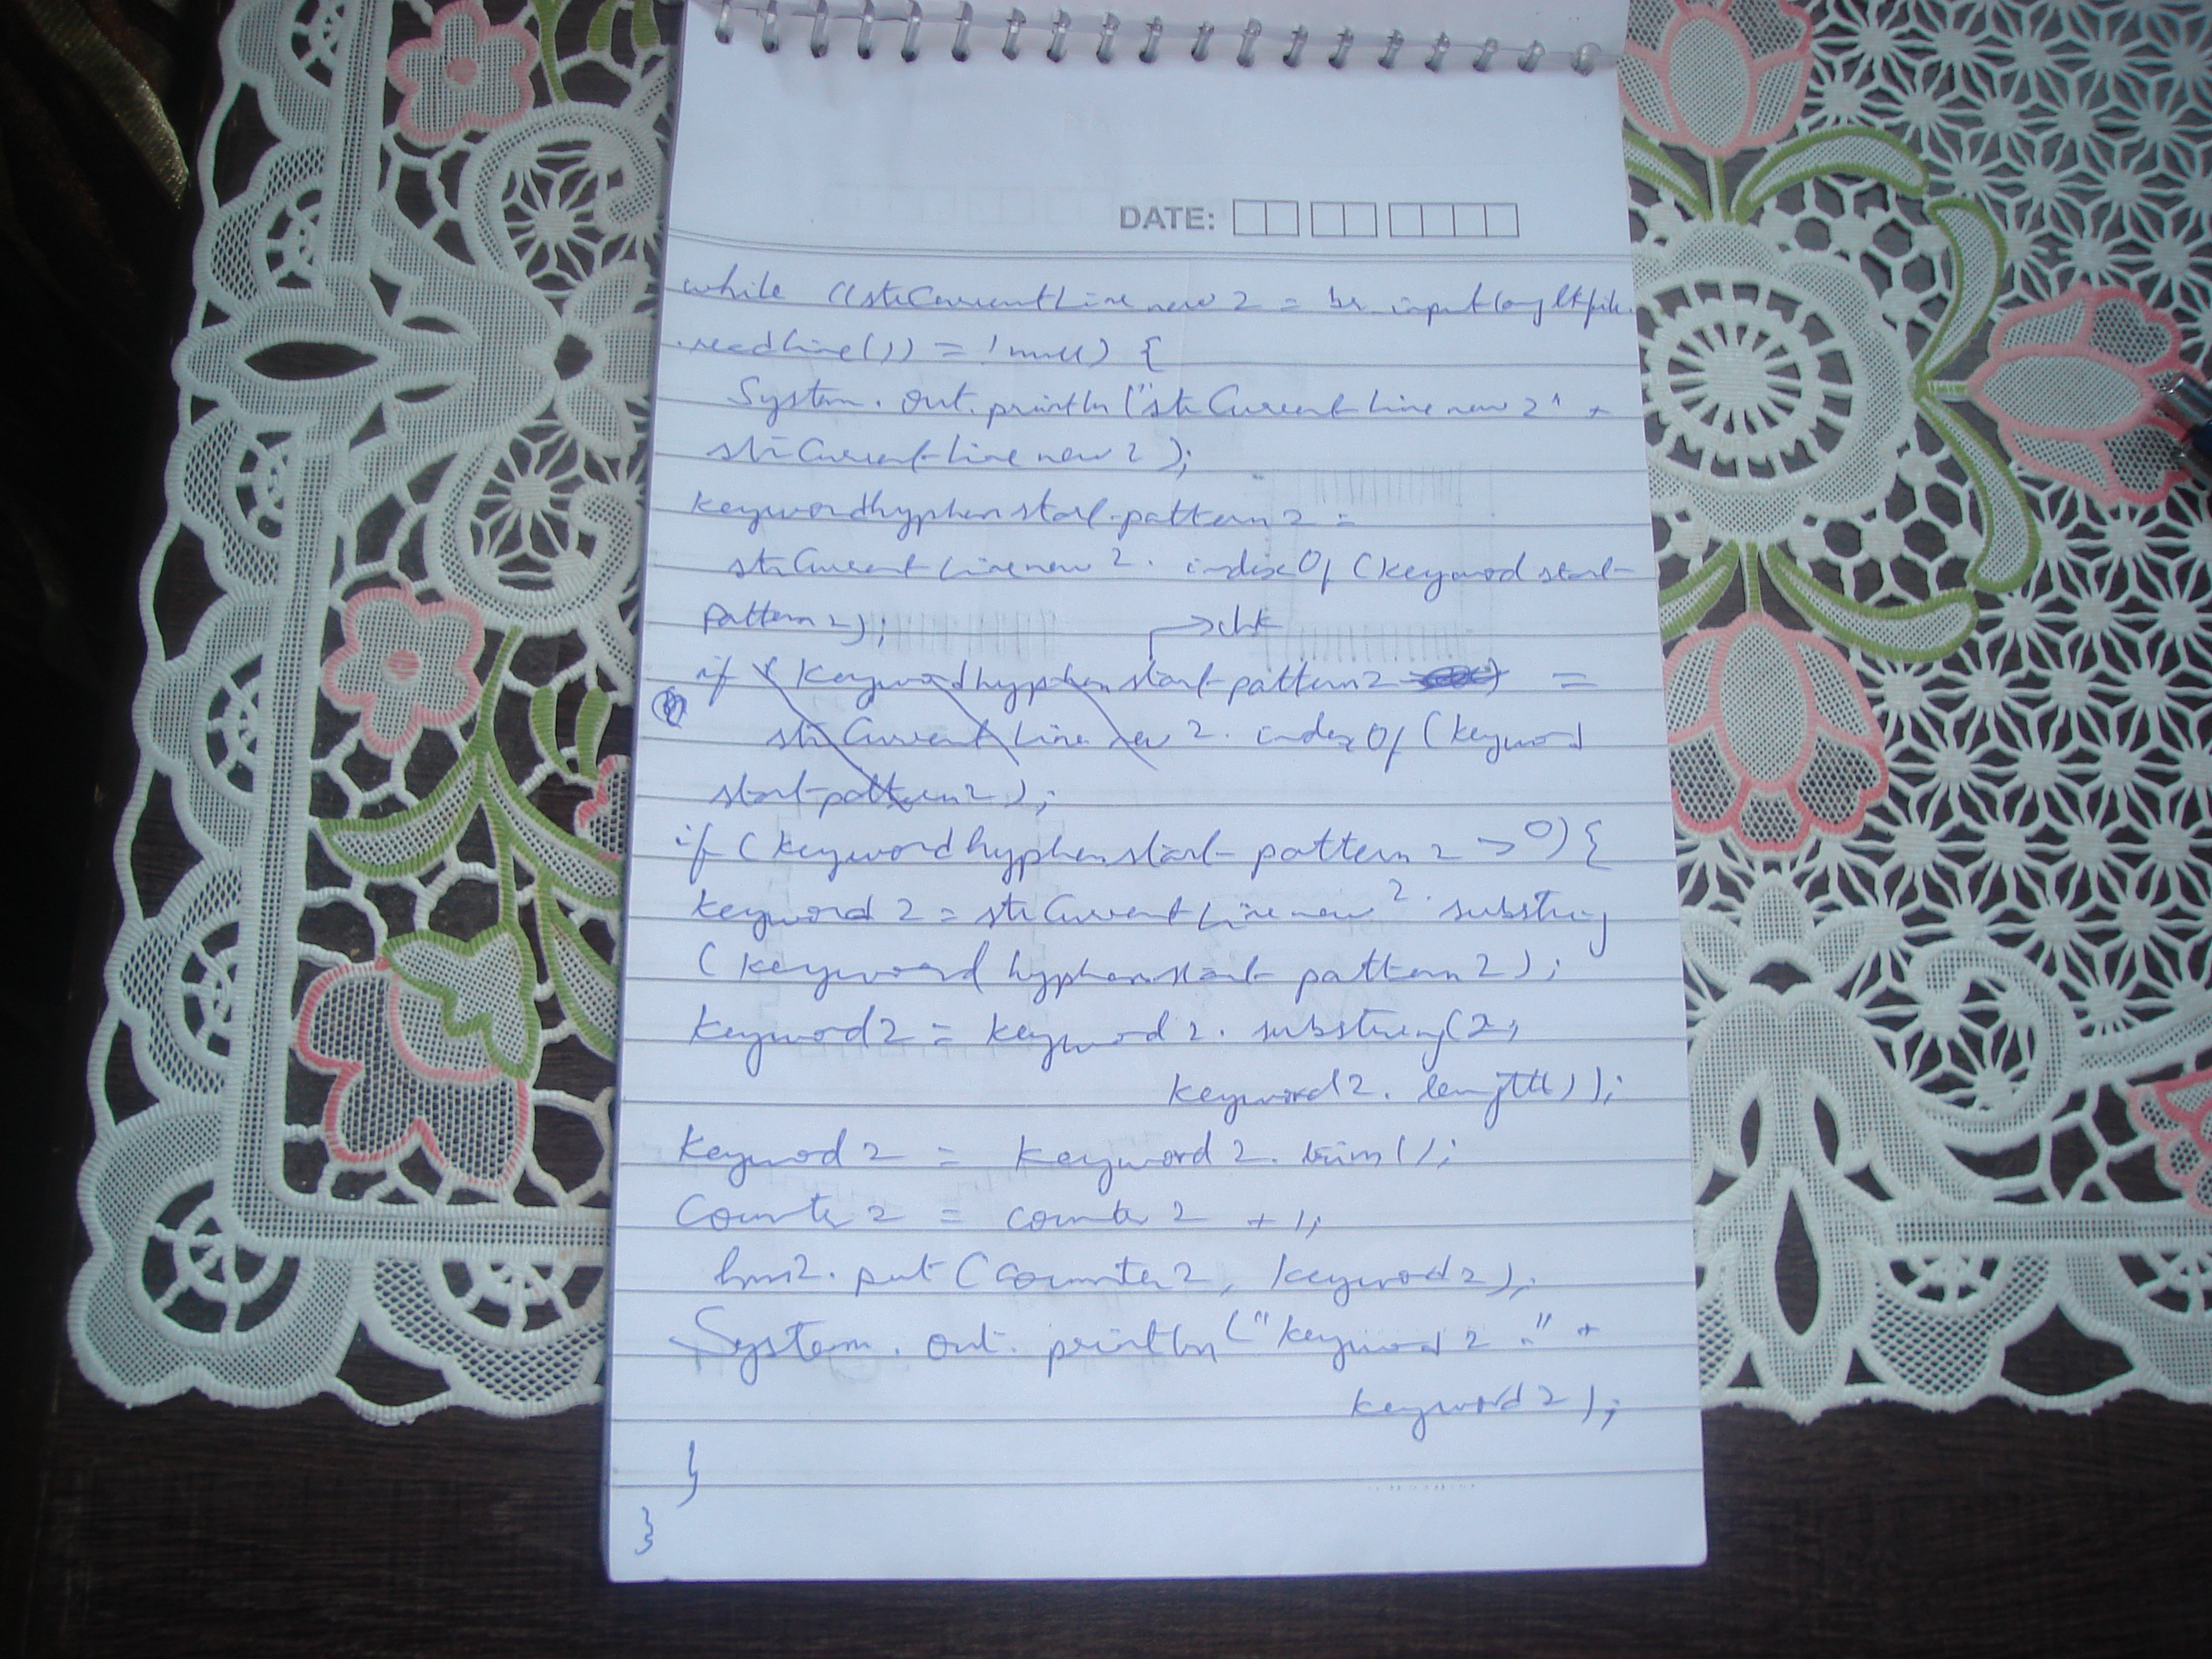 DATE:
while ((strCurrentLinenew2 = br
.readLine()) = !null) {
System.out.println("strCurrentLinenew2" +
strCurrentLinenew2);
keywordhyphenstartpattern2 =
strCurrentLinenew2.indexOf(keywordstart
pattern2);
→chk
if (keywordhyphenstartpattern2 =
strCurrentLinenew2.indexOf(keyword
startpattern2);
if (keywordhyphenstartpattern2 >0) {
keyword2 = strCurrentLinenew2.substring
(keywordhyphenstartpattern2);
keyword2 = keyword2.substring(2,
keyword2.length());
keyword2 = keyword2.trim();
Counter2 = counter2 +1;
hm2.put(counter2, keyword2);
System.out.println("keyword2 :" +
keyword2);
}
}